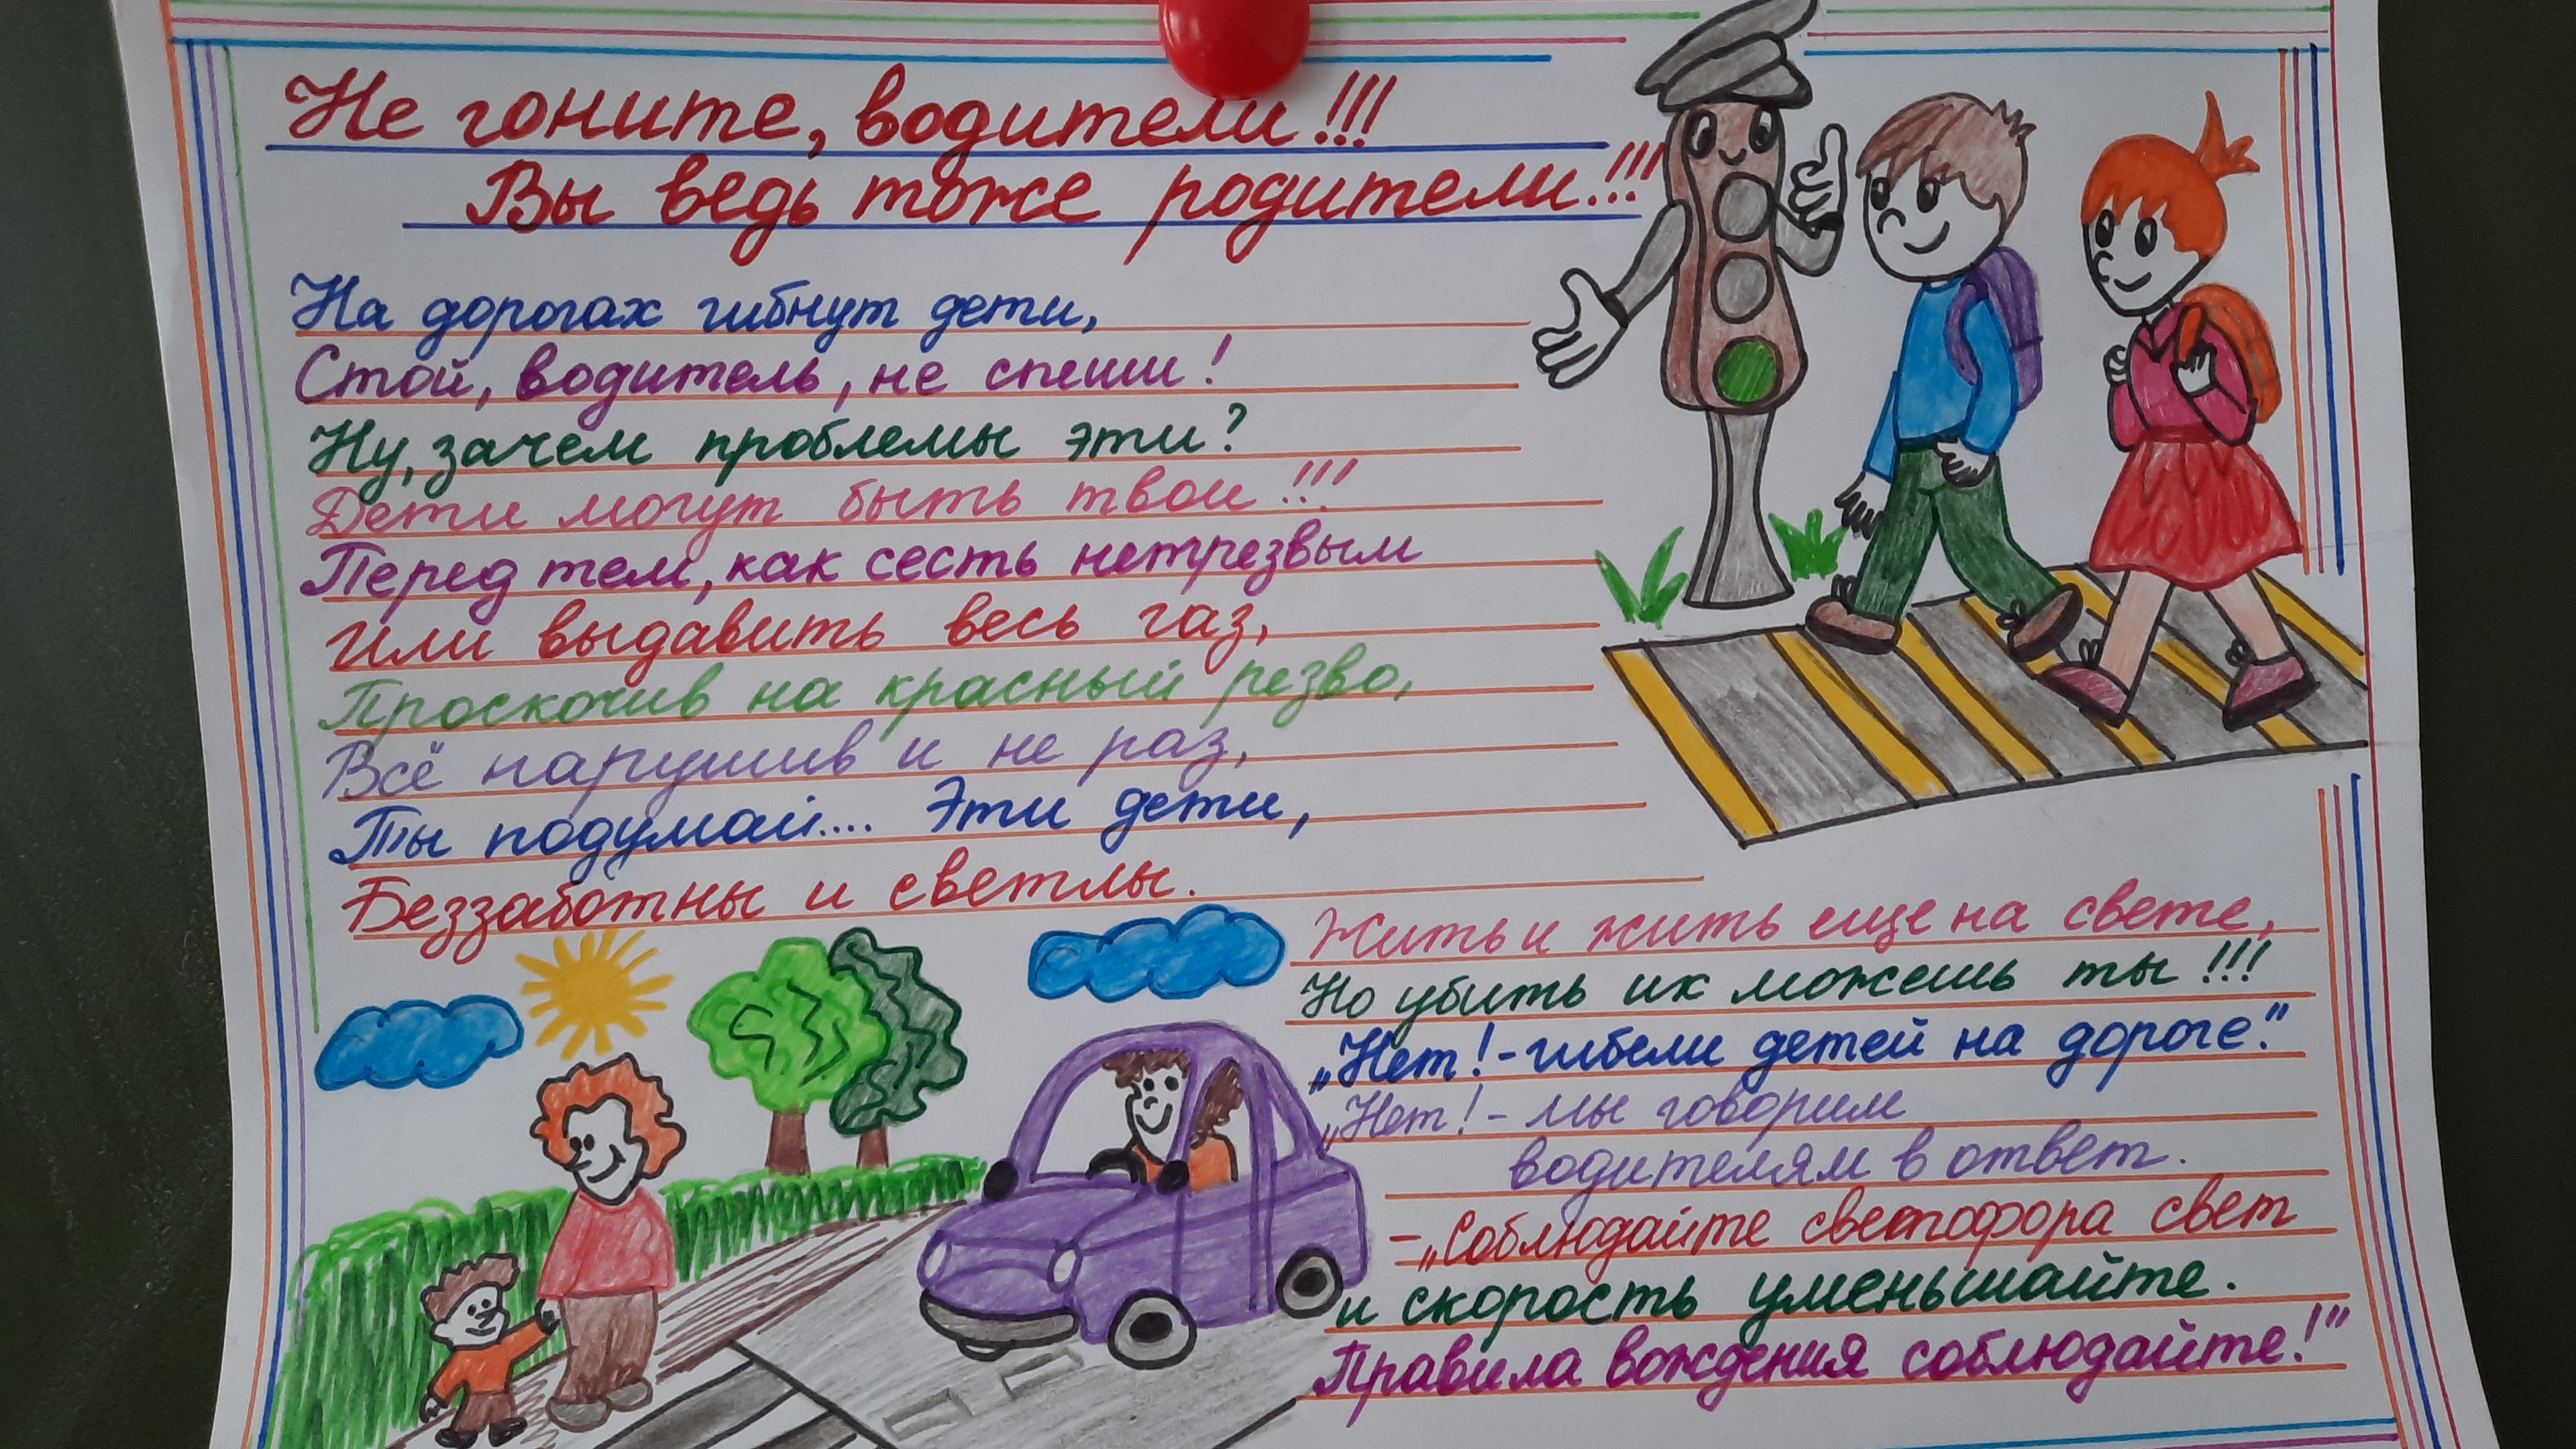 Не гоните, водители!!!
Вы ведь тоже родители!!!
На дорогах гибнут дети,
Стой, водитель, не спеши!
Ну, зачем проблемы эти?
Дети могут быть твои!!!
Перед тем, как сесть нетрезвым
Или выдавить весь газ,
Проскочив на красный резво,
Всё нарушив и не раз,
Ты подумай.... Эти дети,
Беззаботны и светлы.
Жить и жить еще на свете,
Но убить их можешь ты!!!
„Нет! - гибели детей на дороге."
„Нет! - мы говорим
водителям в ответ.
- „Соблюдайте светофора свет
и скорость уменьшайте.
Правила вождения соблюдайте!"